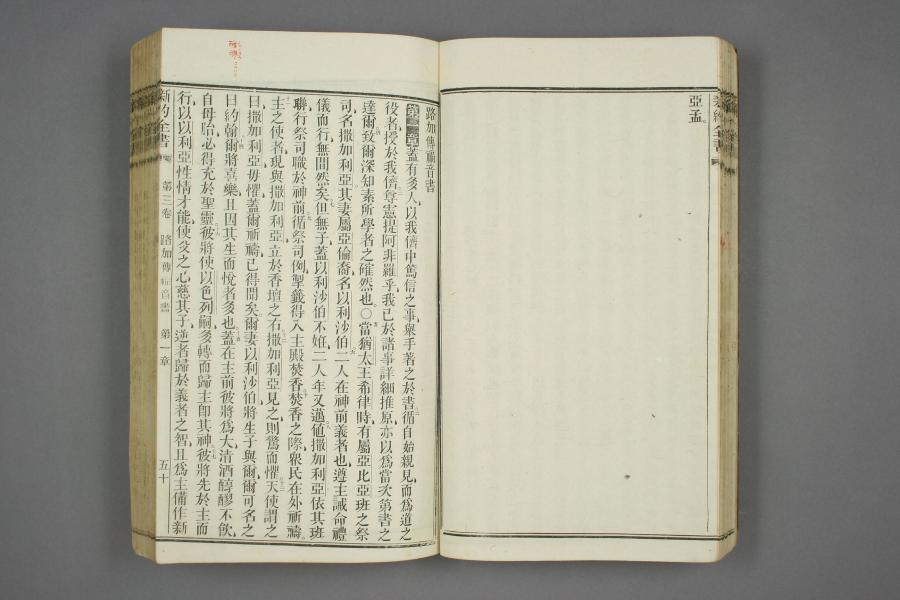 亞孟
新約全書
路加傳福音書
第一章蓋有多人以我儕中篤信之事舉手著之於書循自始親見而爲道之
役者授於我儕尊憲提阿非羅乎我已於諸事詳細推原亦以爲當次第書之
達爾致爾深知素所學者之確然也○當猶太王希律時有屬亞比亞班之祭
司名撒加利亞其妻屬亞倫裔名以利沙伯二人在神前義者也遵主誡命禮
儀而行無間然矣但無子蓋以利沙伯不姙二人年又邁値撒加利亞依其班
聯行祭司職於神前循祭司例掣籤得入主殿焚香焚香之際衆民在外祈禱
主之使者現與撒加利亞立於香壇之右撒加利亞見之則驚而懼天使謂之
曰撒加利亞毋懼蓋爾祈禱已得聞矣爾妻以利沙伯將生子與爾爾可名之
曰約翰爾將喜樂且因其生而悅者多也蓋在主前彼將爲大清酒醇醪不飮
自母胎必得充於聖靈彼將使以色列嗣多轉而歸主卽其神彼將先於主而
行以以利亞性情才能使父之心慈其子逆者歸於義者之智且爲主備作新
新約全書 第三卷 路加傳福音書 第一章 五十